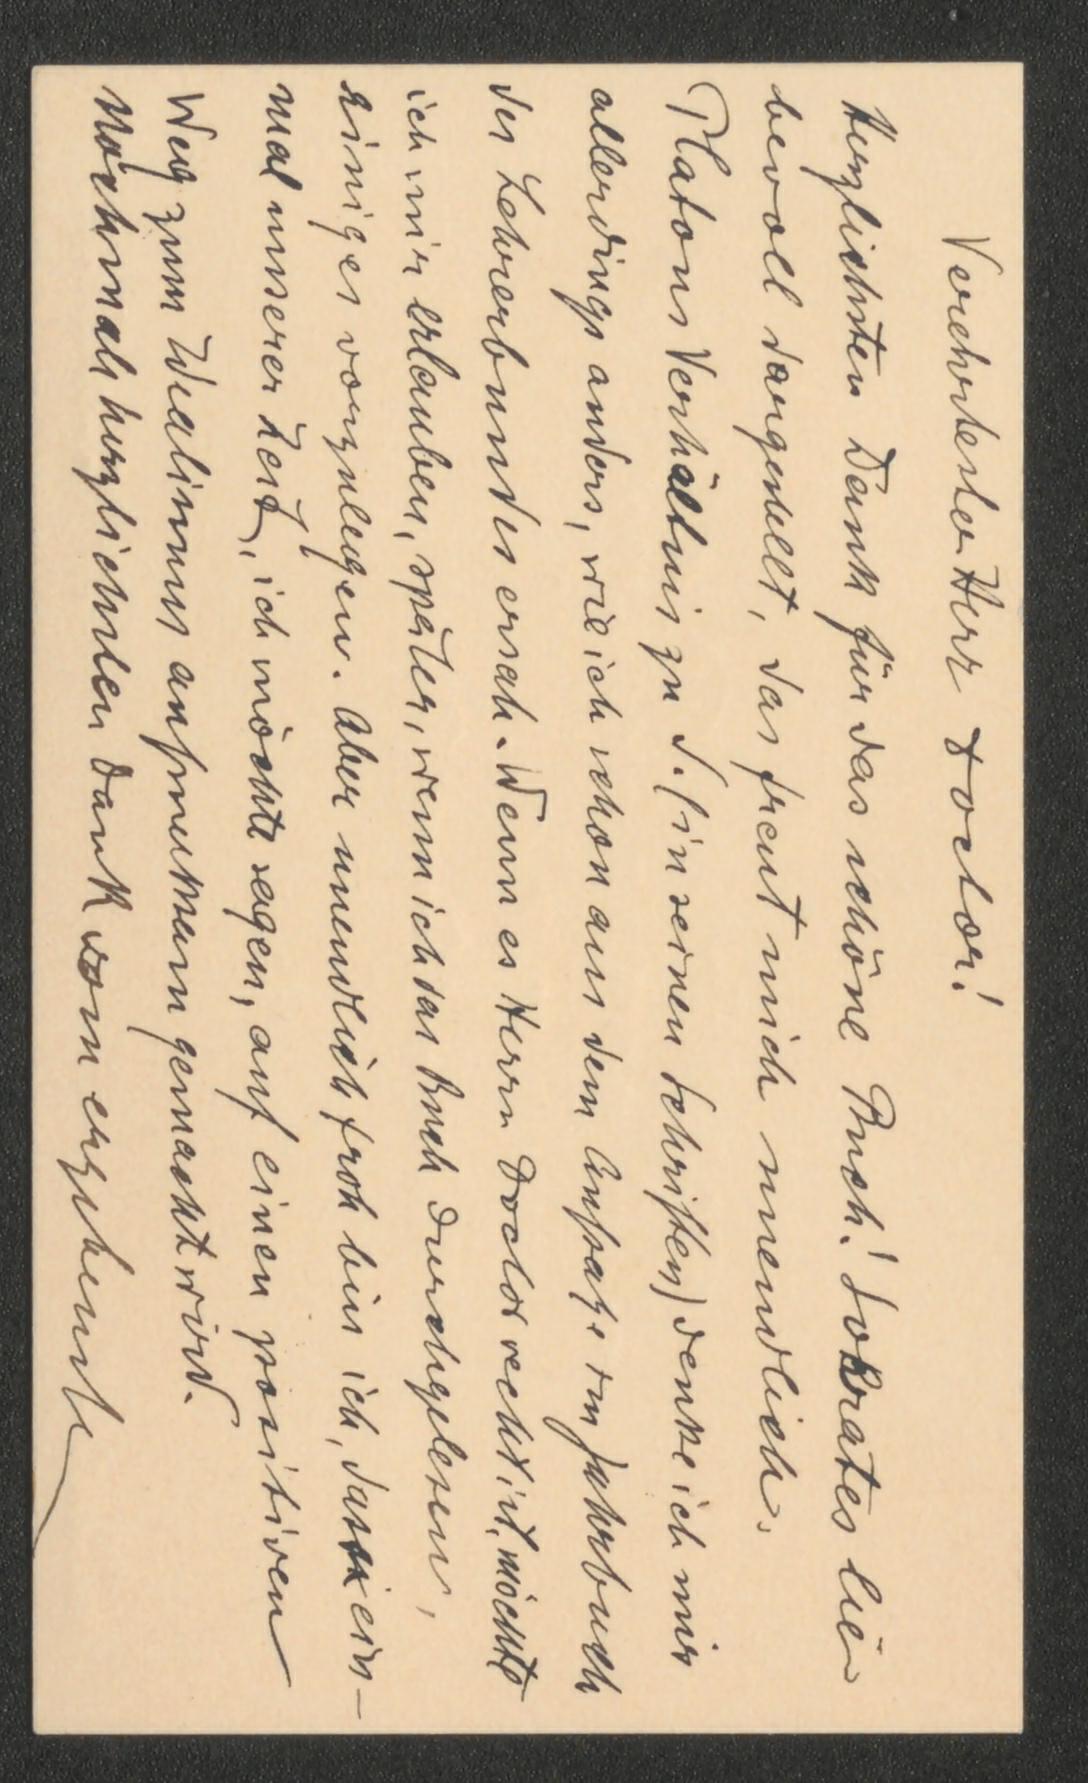 Verehrtester Herr Doctor!
Herzlichsten Dank für das schöne Buch! Sokrates lie
bevoll dargestellt, das freut mich unendlich.
Platons Verhältnis zu S. (in seinen Schriften) denke ich mir
allerdings anders, wie ich schon aus dem Aufsatze im Jahrbuch
des Lehrerbundes ersah. Wenn es Herrn Doctor recht ist, möchte
ich mir erlauben, später, wenn ich das Buch durchgelesen,
einiges vorzulegen. Aber unendlich froh bin ich, dass ein-
mal unserer Zeit, ich möchte sagen, auf einen positiven
Weg zum Idealismus aufmerksam gemacht wird.
Nochmals herzlichsten Dank vom ergebenste